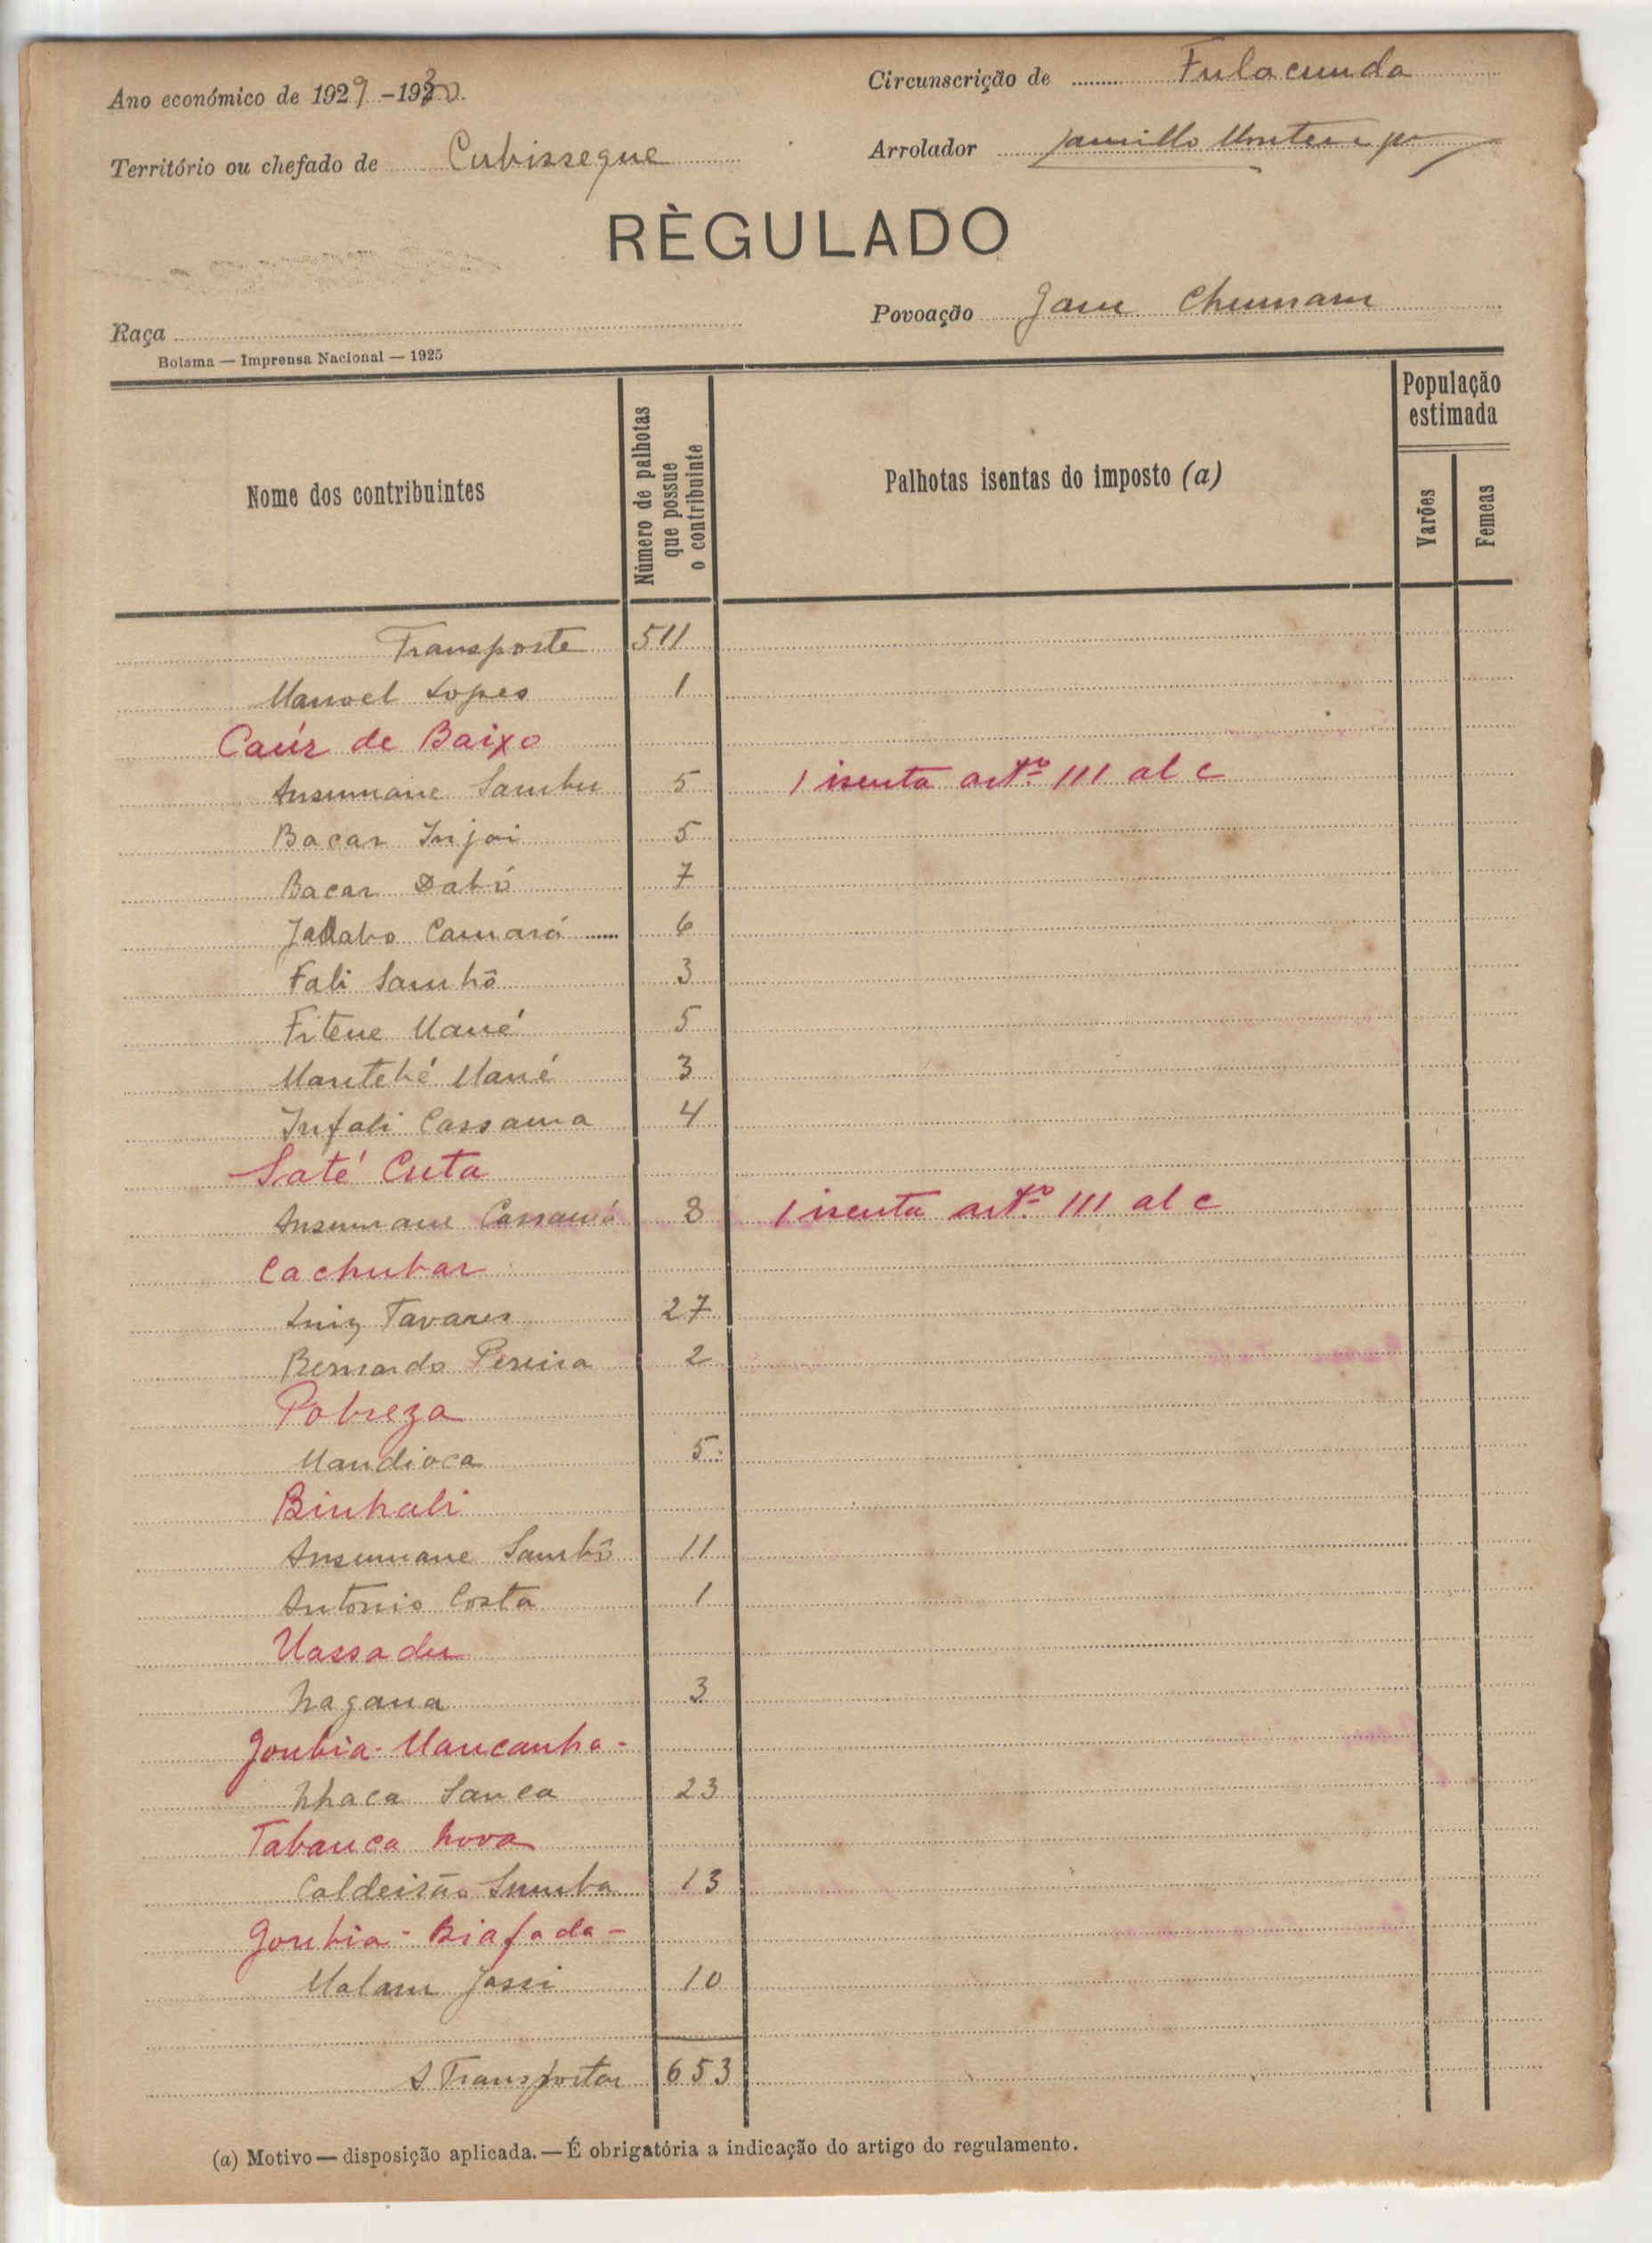 Ano económico de 1929 - 1930.
Circunscrição de Fulacunda
Território ou chefado de Cubisseque
Arrolador
RÈGULADO
Raça
Povoação Jam Chumam
Bolama — Imprensa Nacional — 1925
Nome dos contribuintes
Número de palhotas que possue o contribuinte
Palhotas isentas do imposto (a)
População estimada
Varões
Femeas
Transporte 511
Manoel Lopes 1
Caúr de Baixo
Ansumane Sambu 5 1 isenta artº 111 al c
Bacar Injai 5
Bacar Dabó 7
Camará 6
Fali Sambô 3
Fitene Mané 5
Mantebé Mané 3
Infali Cassama 4
Saté Cuta
Ansumane Cassamá 8 1 isenta artº 111 al c
Cachubar
Luiz Tavares 27
Bernardo Pereira 2
Pobreza
Mandioca 5
Binhali
Ansumane Sambô 11
Antonio Costa 1
Uassadu
Nagana 3
Goubia - Mancanha -
Nhaca Sanca 23
Tabanca Nova
Caldeirão Sumba 13
Goubia - Biafada -
Malam Jassi 10
A Transportar 653
(a) Motivo — disposição aplicada. — É obrigatória a indicação do artigo do regulamento.